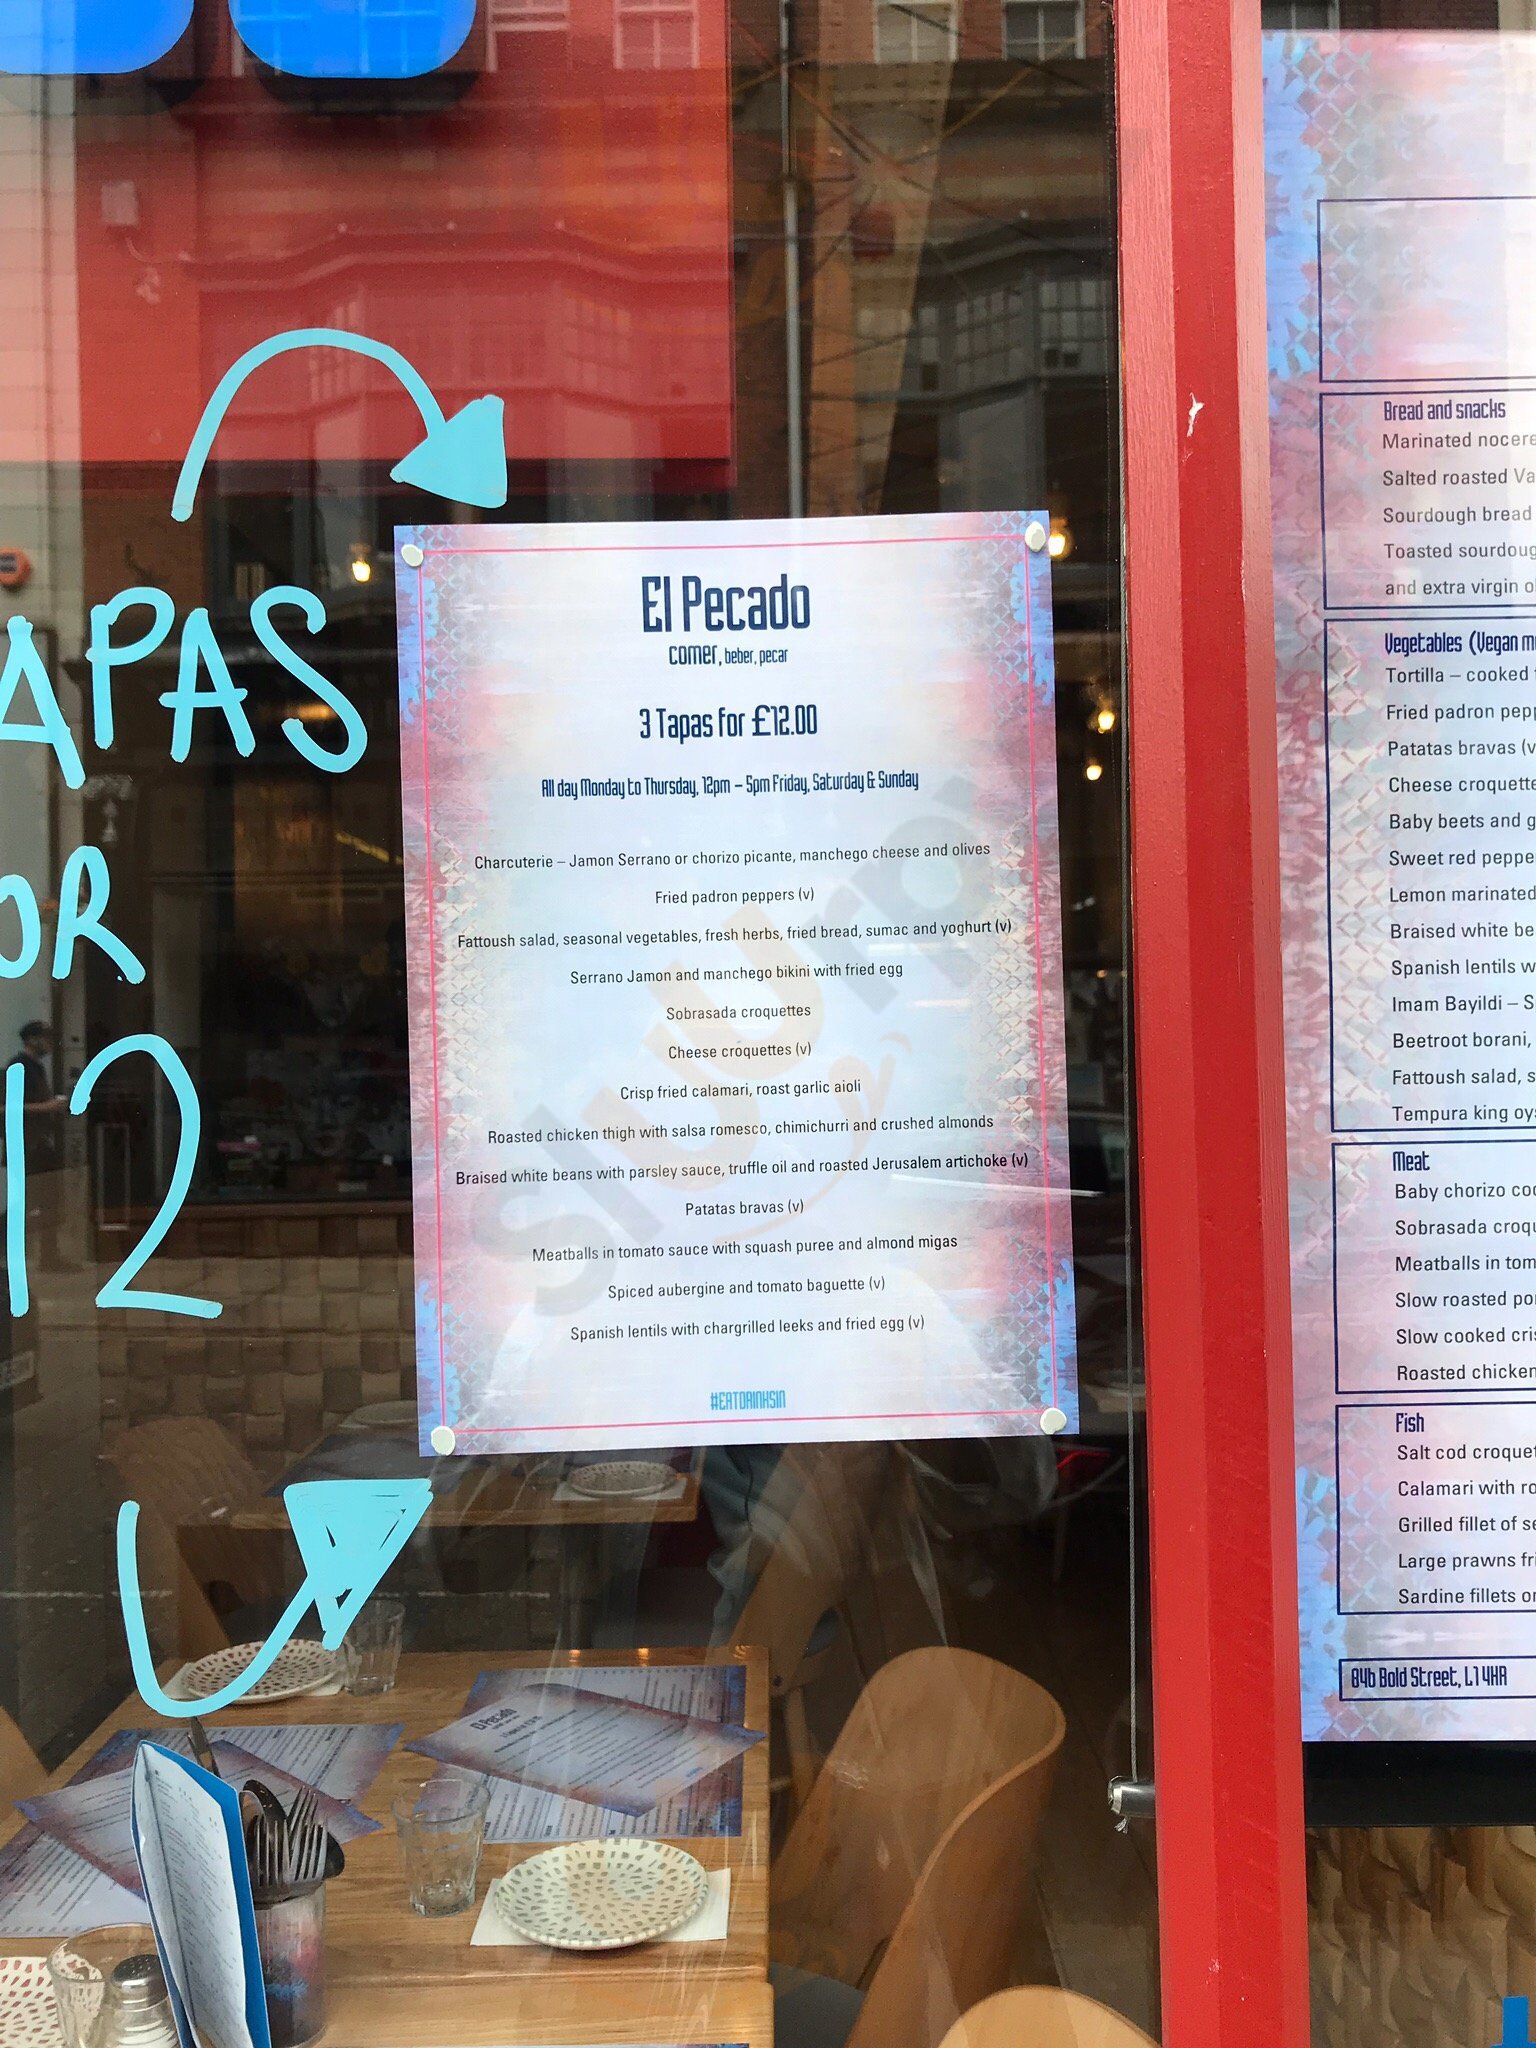 APAS
OR
12
El Pecado
comer, beber, pecar
3 Tapas for £12.00
All day Monday to Thursday, 12pm – 5pm Friday, Saturday & Sunday
Charcuterie – Jamon Serrano or chorizo picante, manchego cheese and olives
Fried padron peppers (v)
Fattoush salad, seasonal vegetables, fresh herbs, fried bread, sumac and yoghurt (v)
Serrano Jamon and manchego bikini with fried egg
Sobrasada croquettes
Cheese croquettes (v)
Crisp fried calamari, roast garlic aioli
Roasted chicken thigh with salsa romesco, chimichurri and crushed almonds
Braised white beans with parsley sauce, truffle oil and roasted Jerusalem artichoke (v)
Patatas bravas (v)
Meatballs in tomato sauce with squash puree and almond migas
Spiced aubergine and tomato baguette (v)
Spanish lentils with chargrilled leeks and fried egg (v)
#EATDRINKSIN
Sluurpy
Bread and snacks
Marinated nocere
Salted roasted Va
Sourdough bread
Toasted sourdoug
and extra virgin
Vegetables (Vegan
Tortilla – cooked
Fried padron pepp
Patatas bravas (v
Cheese croquette
Baby beets and g
Sweet red peppe
Lemon marinated
Braised white be
Spanish lentils w
Imam Bayildi – S
Beetroot borani,
Fattoush salad, s
Tempura king oy
Meat
Baby chorizo coo
Sobrasada croqu
Meatballs in tom
Slow roasted po
Slow cooked cris
Roasted chicken
Fish
Salt cod croquet
Calamari with ro
Grilled fillet of se
Large prawns fri
Sardine fillets o
84b Bold Street, L1 4HR
El Pecado